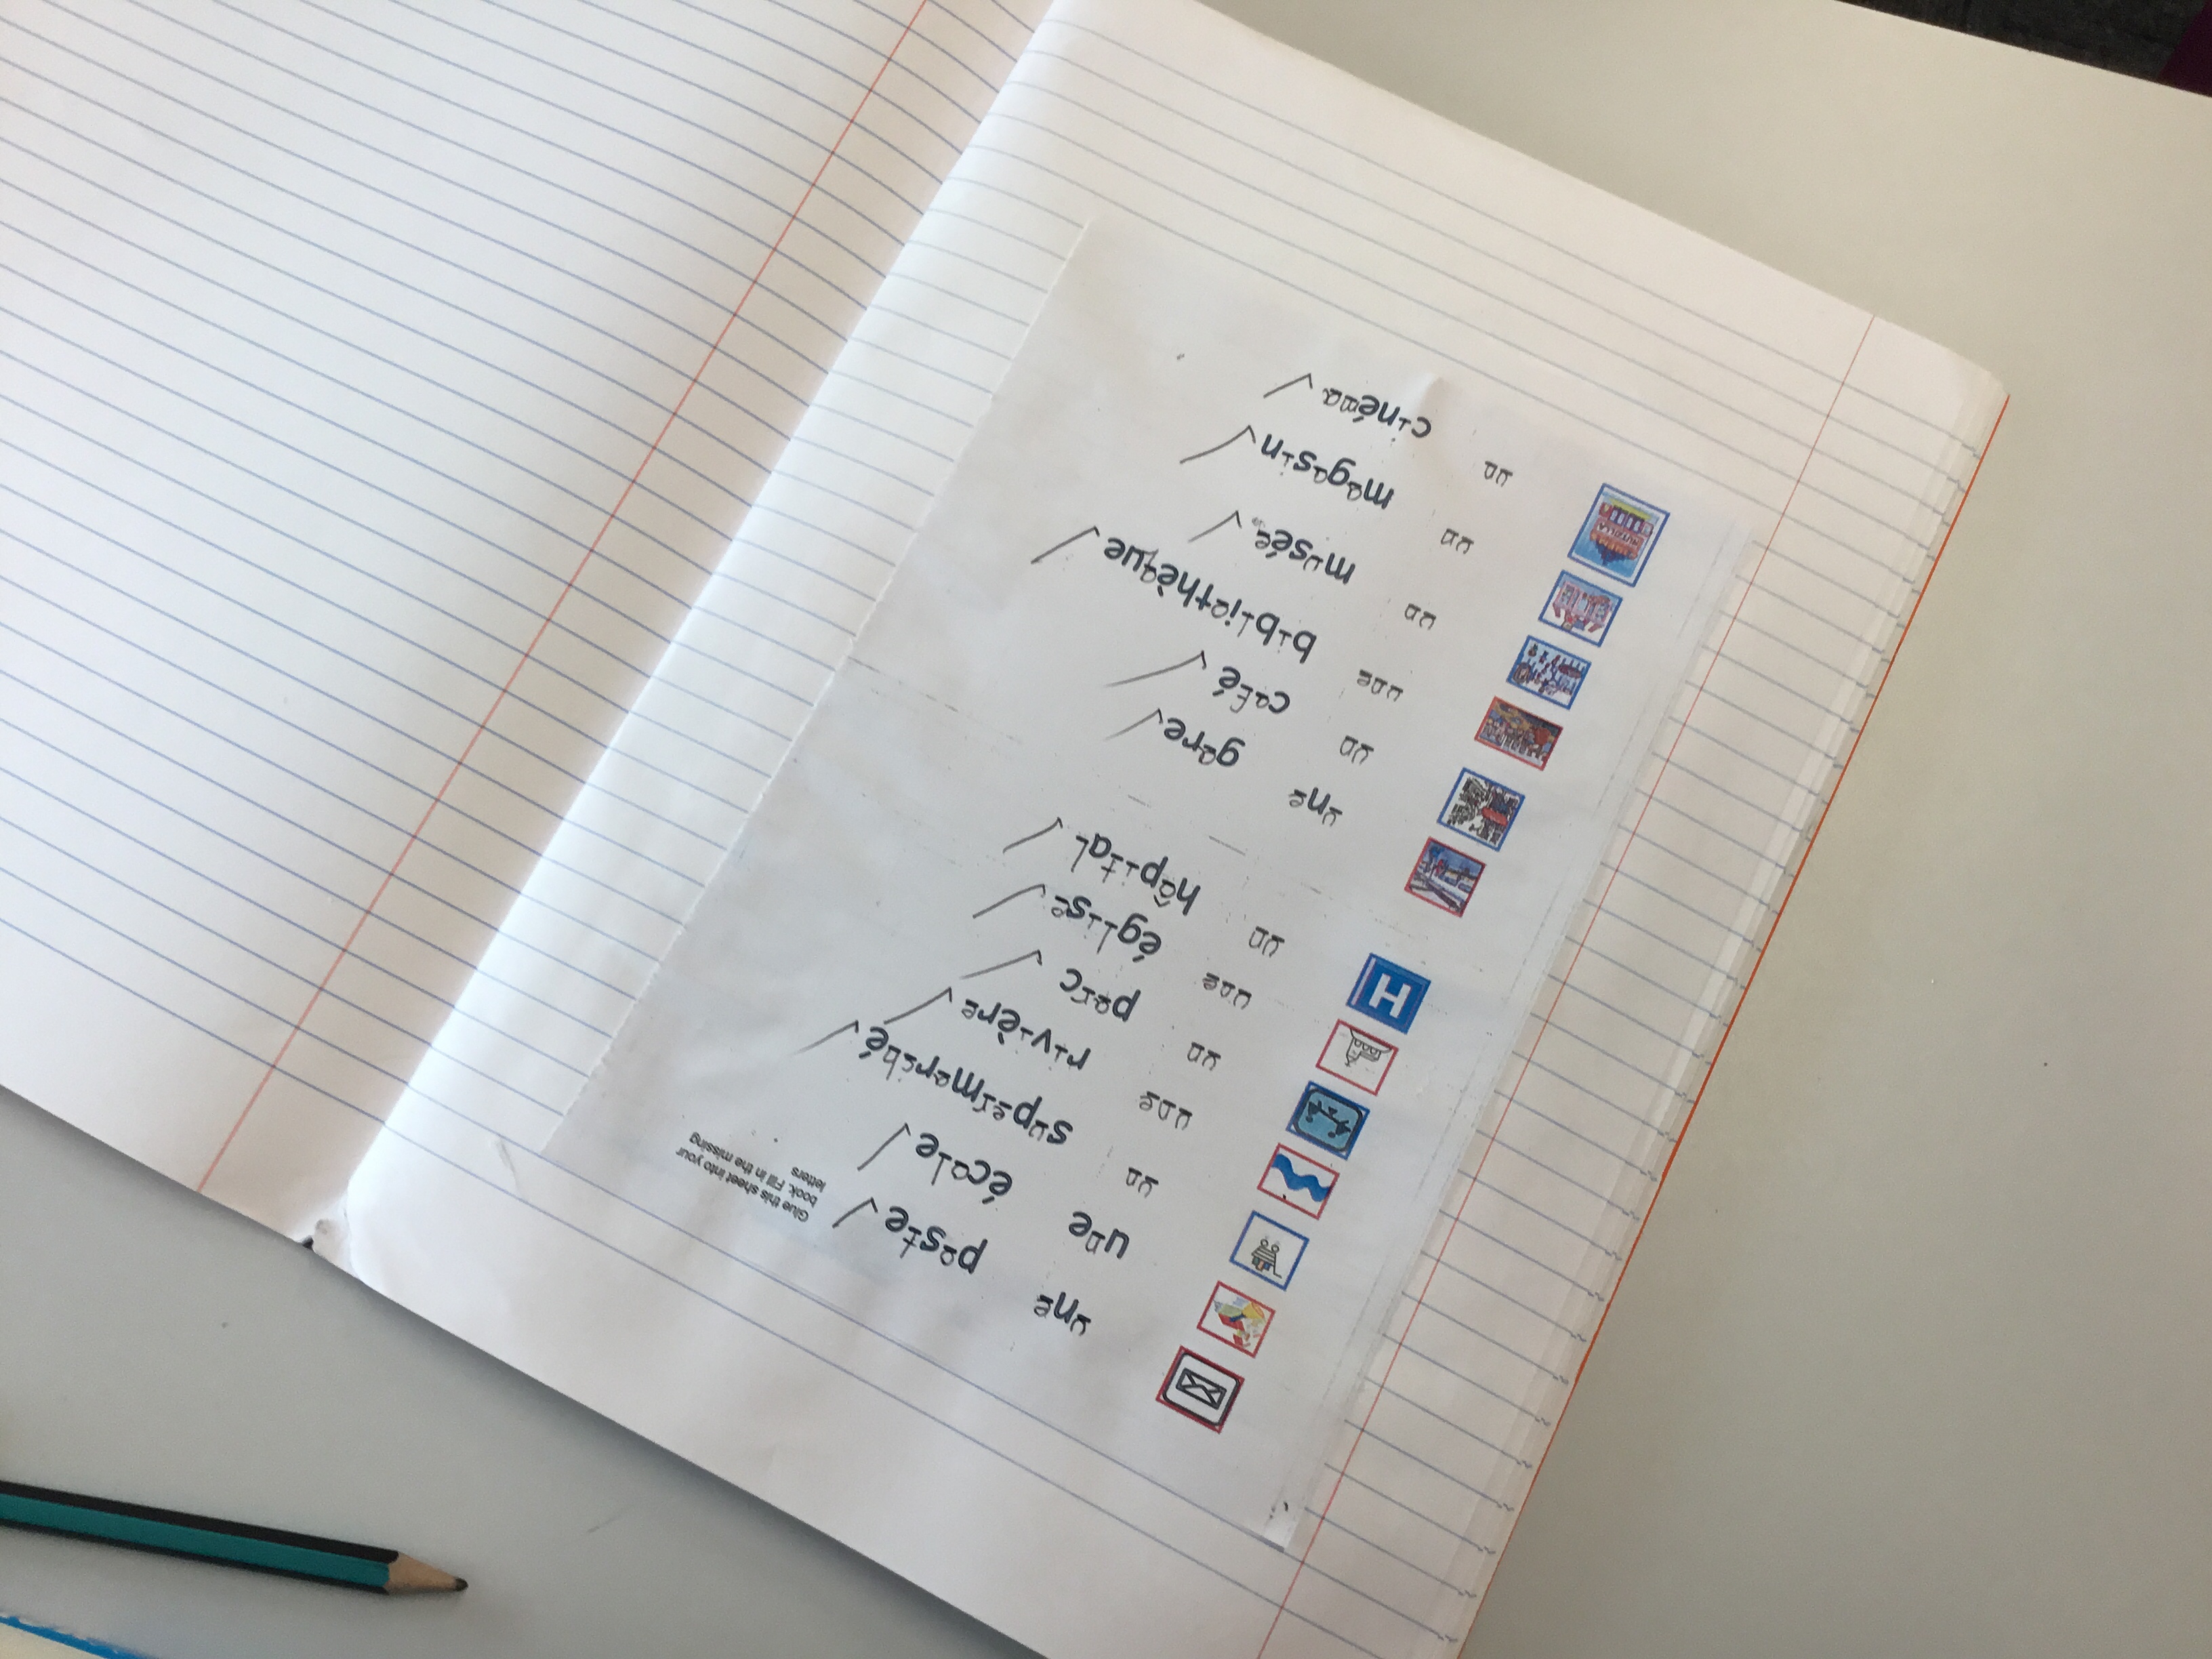 Glue this sheet into your
book. Fill in the missing
letters
une poste
une école
un supermarché
une rivière
un parc
une église
H un hôpital
une gare
un café
une bibliothèque
un musée
un magasin
un cinéma